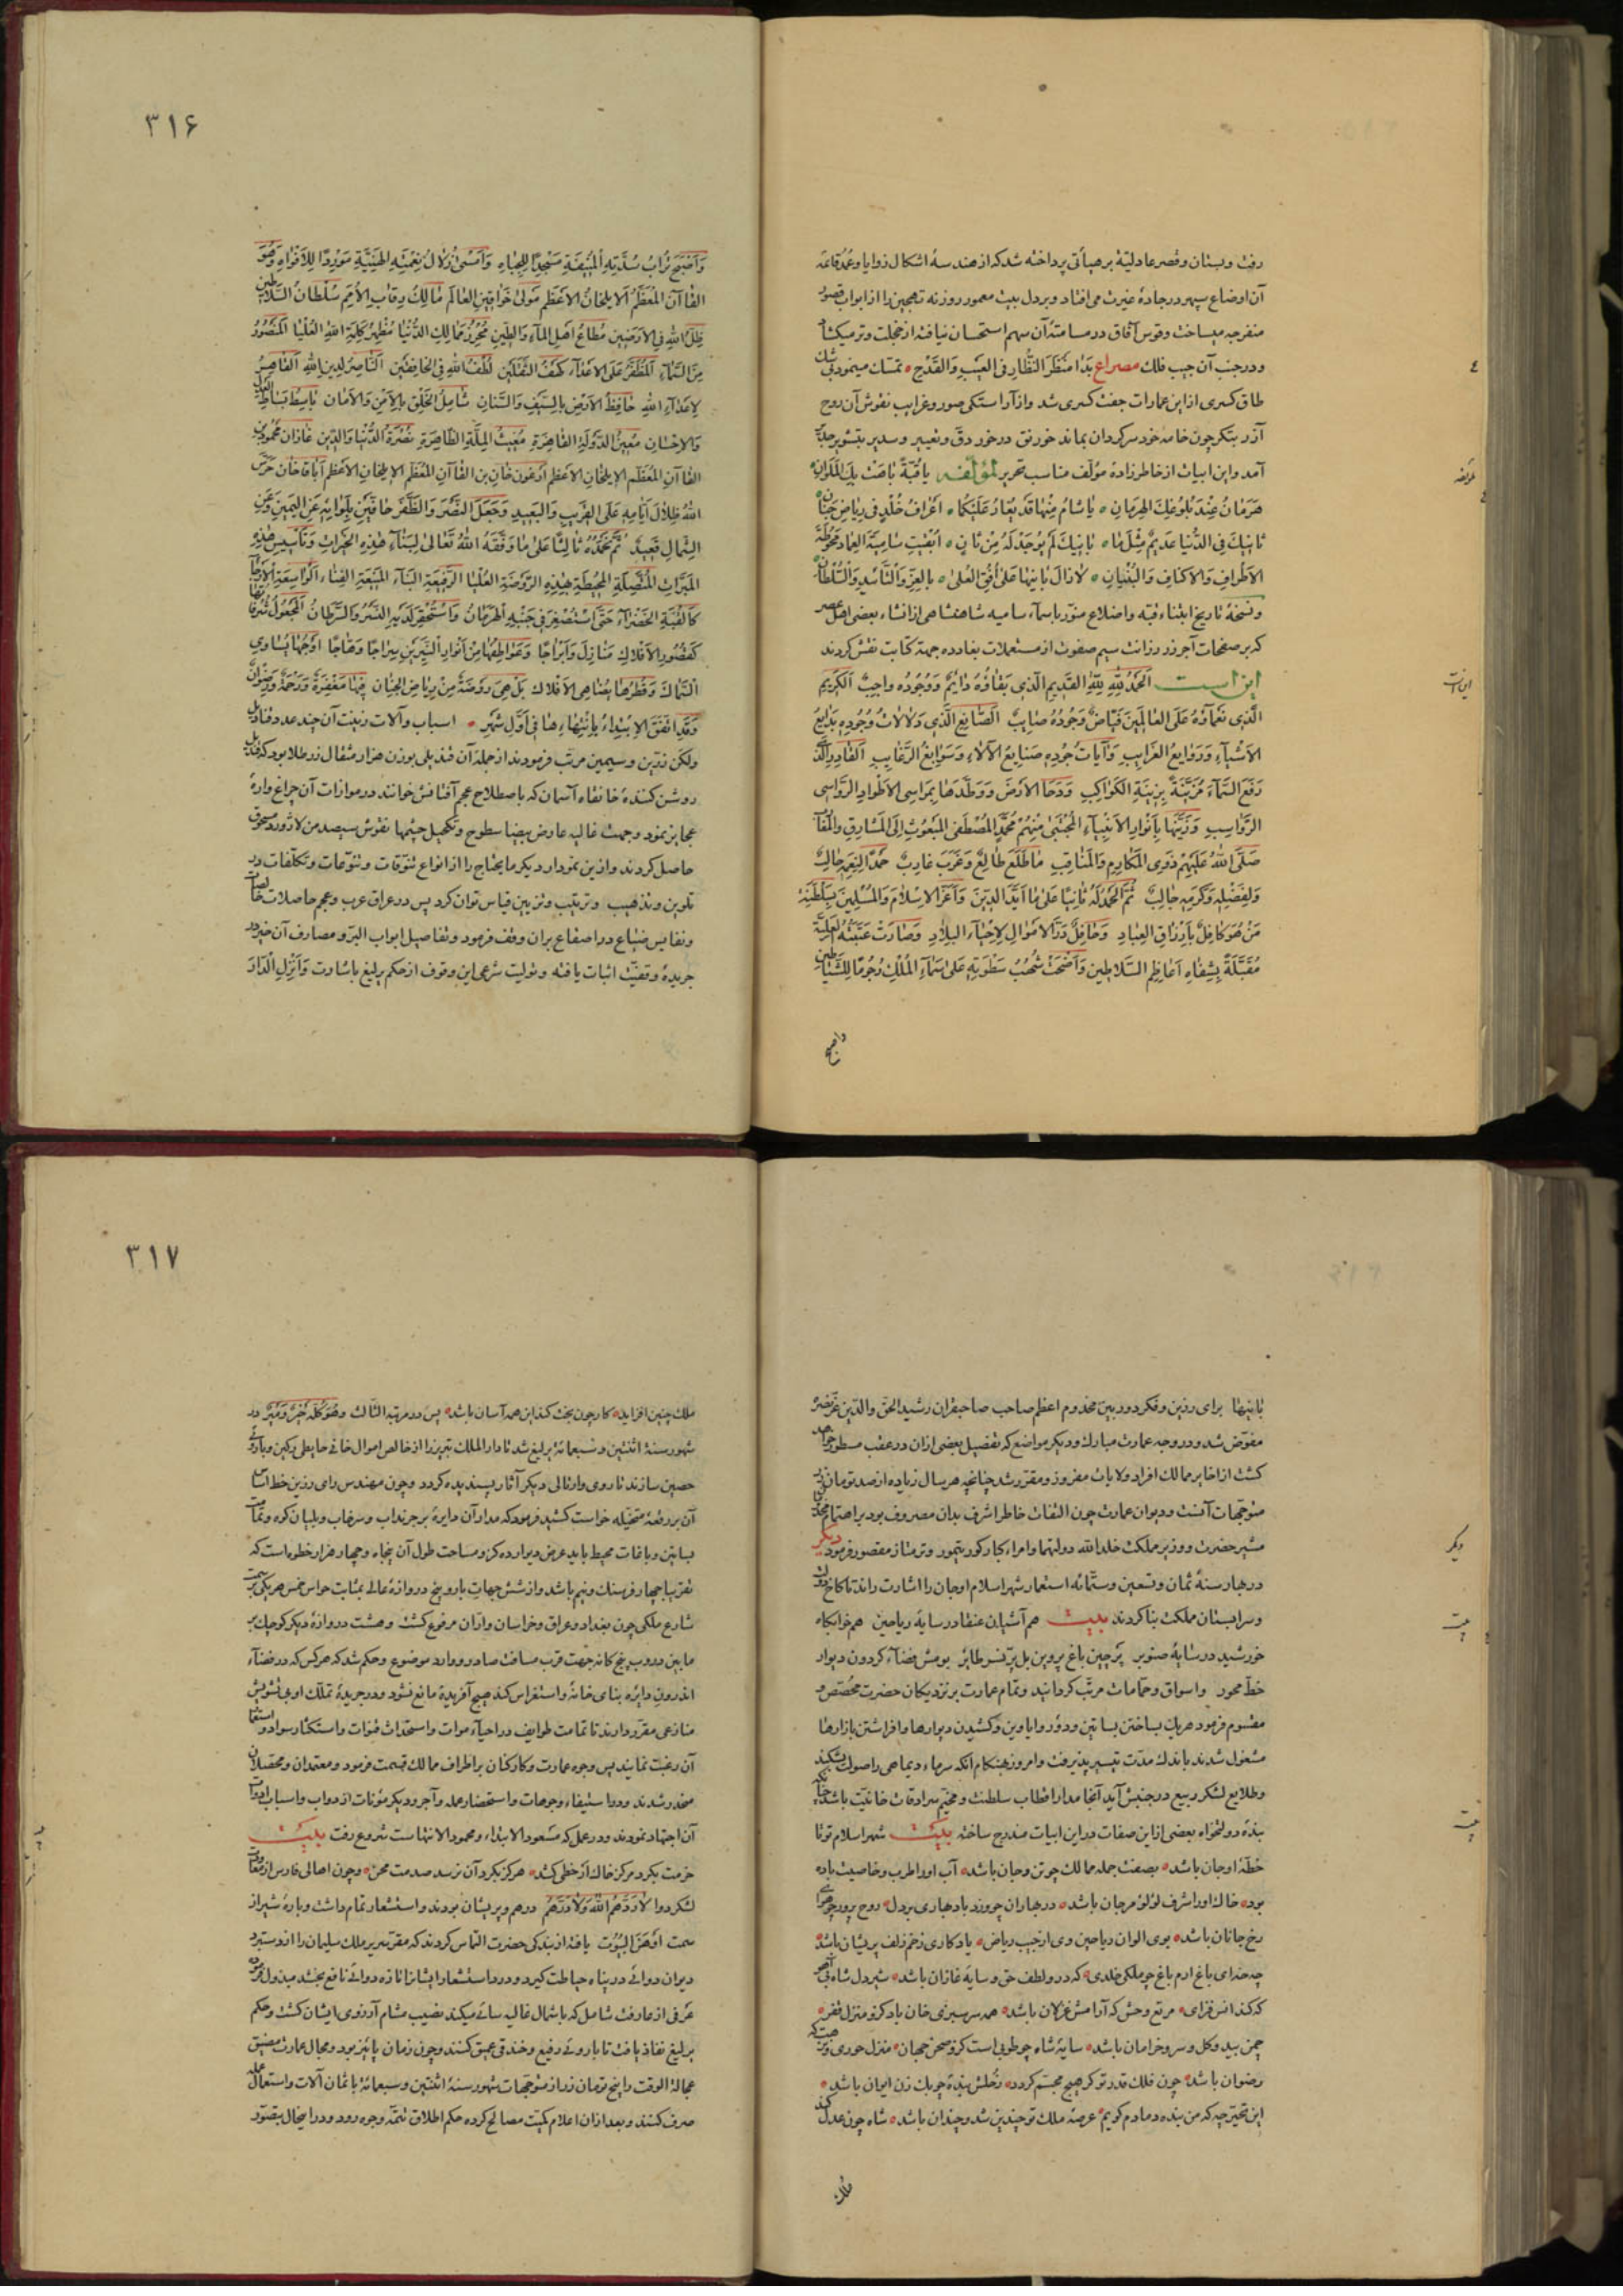 رفت و بستان و قصر عادلیّهٔ بر هیأتی پرداخته شد که از هندسهٔ اشکال زوایا و عقد قاعدهٔ
آن اوضاع سپهر در جادهٔ غیرت می افتاد و بر دل بیت معمور روزنه تهجین را از ابواب قصور
منفرجه میساخت و قوس آفاق در مسامتهٔ آن سهم استحسان نیافته از خجلت وتر میکشاد
و در جنب آن جیب فلک مصراع بدا منظر النظّار فی العیب والقدح تمسک مینمود بی شک
طاق کسری ازاین عمارات جفت کسری شد و از آراستکی صور و غرایب نقوش آن روح
آزر بتکر چون خامه خود سرکردان بماند خورنق در خور دق و تعییر و سدیر بتشویر جدیر
آمد و این ابیات از خاطر زادهٔ مؤلف مناسب تحریر لمؤلفه یا قبّة باهت بک الملوان
هرمان عند بلوغک الهرمان یا شام منها قد یغار علیکما اعراف خلد فی ریاض جنان
ثانیک فی الدنیا عدیم مثل ما بانیک لم یوجد له من ثان ابقیت سامیة العماد محوطة
الاطراف والاکناف والبنیان لازال بانیها علی افق العلی بالعزّ والتأیید والسلطان
و نسخهٔ تاریخ ابتناء قبّه و اضلاع منوّر باسماء سامیه شاهنشاهی از انشاء بعضی اهل عصر
که بر صفحات آجر زر رزانت سیم صفوت از مستعملات بغادده جهة کتابت نقش کردند
این است الحمد لله القدیم الّذی بقاؤه دایم ووجوده واجب الکریم
الّذی نعماؤه علی العالمین فیّاض وجوده صایب الصّانع الّذی دلالات وجوده بدایع
الاشیاء وروایع الغرایب وآیات جوده صنایع الآلاء وسوابغ الرّغایب القادر الذی
رفع السّماء مزیّنة بزینة الکواکب ودحا الارض ووطّدها بمراسی الاطواد الرّواسی
الرّواسب وزیّنها بانوار الانبیاء المجتبی منهم محمّد المصطفی المبعوث الی المشارق والمغارب
صلّی الله علیهم ذوی المکارم والمناقب ما طلع طالع وغرب غارب حمدا لنعمه جالب
ولفضله وکرمه جالب ثمّ الحمد له ثانیا علی ما ایّد الدّین واعزّ الاسلام والمسلمین بسلطنة
من هو کافل بارزاق العباد وحافل درّ الاموال لاحیاء البلاد وصارت عتبته العلیّة
مقبّلة بشفاه اعاظم السّلاطین واضحت شهب سطوته علی سماء الملک رجوما للشّیاطین
واصبح
۳۱۶
واصبح تراب سدّته المنیفة مسجدا للجباه وامسی زلال نعمته الهنیّة موردا للافواه وهو
القاآن المعظّم الایلخان الاعظم مولی خواقین العالم مالک رقاب الامم سلطان السّلاطین
ظلّ الله فی الارضین مطاع اهل الماء والطین محرز ممالک الدّنیا مظهر کلمة الله العلیا المنصور
من السّماء المظفّر علی الاعداء کهف الثّقلین لطف الله فی الخافقین النّاصر لدین الله القاهر
لاعداء الله حافظ الارض بالسّیف والسّنان شامل الخلق بالامن والامان باسط بساط العدل
والاحسان معین الدّولة القاهرة مغیث الملّة الظّاهرة نصرة الدّنیا والدّین غازان محمود بن
القاآن المعظّم الایلخان الاعظم ارغون خان بن القاآن المعظّم الایلخان الاعظم اباقا خان حرس
الله ظلال ایّامه علی القریب والبعید وجعل النّصر والظّفر حافّین بلوائه عن الیمین وعن
الشّمال قعید ثمّ نحمده ثالثا علی ما وفّقه الله تعالی لبناء هذه الخیرات وتأسیس هذه
المبرّات المتّصلة المحیطة بهذه الرّوضة العلیا الرّفیعة البناء المنیعة الفناء الواسعة الارجا
کالقبّة الخضراء حتّی استصغر فی جنبه الهرمان واستحقر لدیه النّسر والسّرطان المجعول شرفاتها
کقصور الافلاک منازل وابراجا وعواطفها من انوار النّیّرین سراجا وهّاجا اوجها یساوی
السّماک وقطرها یضاهی الافلاک بل هی روضة من ریاض الجنان فیها مغفرة ورحمة ورضوان
وقد اتّفق الابتداء بابتنهاءها فی اوّل شهر اسباب و آلات و زینت آن چند عدد قنادیل
ولکن زرّین و سیمین مرتّب فرمودند از جمله آن قندیلی بوزن هزار مثقال زر طلا بود که قندیل
روشن کنندهٔ خانقاه آسمان که باصطلاح عجم آفتابش خوانند در موازات آن چراغ واره
عجایز نمود و جهت غالیه عارض بیضا سطوح و تکحیل چشمها نقوش سیصد من لازورد مسحوق
حاصل کردند و ازین نمودار دیکر مایحتاج را از انواع تنوّقات و تنوّعات و تکلّفات در
تلوین و تذهیب و ترتیب و تزیین قیاس توان کرد پس در عراق عرب و عجم حاصلات خالصات
و نفایس ضیاع در اصقاع بران وقف فرمود و تفاصیل ابواب البرّ و مصارف آن خیر در
جریدهٔ وقفیّت اثبات یافته و تولیت شرعی این وقوف از حکم یرلیغ باشارت وانزل الدار
بانیها برای رزین و فکر دوربین مخدوم اعظم صاحب صاحبقران رشید الحق والدّین عزّ نصره
مفوّض شد و در وجه عمارت مبارک و دیکر مواضع که تفصیل بعضی ازان در عقب مسطور خواهد
کشت از اخایر ممالک افراد ولایات مفروز و مقرّر شد چنانچه هر سال زیاده از صد تومان زر
متوجّهات آنست و دیوان عمارت چون التفات خاطر اشرف بدان مصروف بود بر اهتمام
مشیر حضرت و وزیر مملکت خلد الله دولتهما و امراء کبار کور تیمور و ترمتاز مقصور فرمود دیکر
در بهار سنهٔ ثمان و تسعین و ستّمائه استعمار شهر اسلام اوجان را اشارت راند تا کاخ دولت
و سرابستان مملکت بنا کردند بیت هم آشیان عنقا در سایهٔ ریاحین هم خوابکاه
خورشید در سایهٔ صنوبر پرچین باغ پروین بل پرّ نسر طایر بومش فضاء کردون دیوار
خط محور واسواق و حمّامات مرتّب کردانید و تمام عمارت بر نزدیکان حضرت مخصّص و
مقسوم فرمود هر یک بساختن بساتین و دور و ایاوین و کشیدن دیوارها و افراشتن بازارها
مشغول شدند باندک مدّت تیسیر پذیرفت و امروز هنکام انکه سرماء دیماهی را صولت بشکند
و طلایع لشکر ربیع در جنبش آید آنجا مدار اقطاب سلطنت و مخیّم سرادقات خانیّت باشد چنانکه
بندهٔ دولتخواه بعضی ازاین صفات در این ابیات مندرج ساخته بیت شهر اسلام تو تا
خطّهٔ اوجان باشد بصفت جمله ممالک چو تن و جان باشد آب او را طرب و خاصیت باده
بود خاک او را شرف لؤلؤ مرجان باشد در بهاران چو وزد باد بهاری بر دل روح پرور چو هوای
رخ جانان باشد بوی الوان ریاحین وی از جیب ریاض یادکاری ز خم زلف پریشان باشد
چه خدای باغ ارم باغ چو ملکی خلدی که درو لطف حق و سایهٔ غازان باشد شیر دل شاه بی آهو
که کند انس قزای مرتع وحش که آرامش غزلان باشد همه سر سبزی خان باد کزو منزل فقر
چمن بید و کل و سرو خرامان باشد سایهٔ شاه چو طوبی است کزو صحن جهان منزل حوری و
رضوان باشد چون فلک قدر تو کر هیچ مجسّم کردد زحلش بندهٔ چوبک زن ایوان باشد
این تحیّر چه که من بنده دمادم کویم عرصهٔ ملک تو چندین شد و چندان باشد شاه چون عدل کند
ملک
۳۱۷
ملک چنین افزاید کار چون بخت کند این همه آسان باشد پس در مرتبهٔ الثالث وهو کلّه خیر ومیر در
شهور سنهٔ اثنتین و سبعمائهٔ یرلیغ شد تا دار الملک تبریز را از خالص اموال خانی حایطی رکین و باروئی
حصین سازند تا روی وارثالی دیکر آثار پسندیده کردد و چون مهندس رای رزین خط اساس
آن بر رقعهٔ متخیّله خواست کشید فرمود که مدار آن دایرهٔ بر جرنداب و سرخاب و بیلیان کره و تمامت
بساتین و باغات محیط باید عرض دیوار ده کز و مساحت طول آن پنجاه و چهار هزار خطوه است که
تقریبا چهار فرسنک و نیم باشد و از شش جهات بارو پنج دروازهٔ عالی بمثابت حواس خمس هر یکی بر سمت
شارع ملکی چون بغداد و عراق و خراسان و ارّان مرفوع کشت و هشت دروازهٔ دیکر کوچک بر
مابین دروب پنج کانه جهت قرب مسافت صادر و وارد موضوع و حکم شد که هر کس که در فضاء
اندرون دایره بنای خانهٔ و استغراس کند هیچ آفریدهٔ مانع نشود و در جریدهٔ تملّک او بی تشویش
منازعی مقرّر دارند تا تمامت طوایف در احیاء موات و استحداث قنوات و استکثار سواد و استنما
آن رغبت نمایند پس وجوه عمارت و کارکنان بر اطراف ممالک قسمت فرمود و معتمدان و محصّلان
منحدر شدند و در استیفاء وجوهات و استحضار عمله و آجر و دیکر مؤنات از دواب و اسباب و ادوات
آن اجتهاد نمودند و در عمل که مسعود الابتداء و محمود الانتهاست شروع رفت بیت
حزمت بکرد مرکز خاک از خطی کشد هرکز بکرد آن نرسد صدمت محن و چون اهالی فارس از معاودت
لشکر دوا لا ردّهم الله ولا ودّهم درهم و پریشان بودند و استشعار تمام داشت و بارهٔ شیراز
سمت اوهن البیوت یافته از بندکی حضرت التماس کردند که مقرّ سریر ملک سلیمان را از دستبرد
دیوان دوائی در پناه حیاطت کیرد و درد استشعار ایشانرا از دواء نافع بخشد مبذول فرمود
عرفی از عارفت شامل که با شمال غالیه سائی میکند نصیب مشام آرزوی ایشان کشت و حکم
یرلیغ نفاذ یافت تا باروئی رفیع و خندقی عمیق کنند و چون زمان پائیز بود و مجال عمارت مضیق
عجالة الوقت را پنج تومان زر از متوجّهات شهور سنهٔ اثنتین و سبعمائهٔ باثمان آلات و استعمال عمله
صرف کنند و بعد ازان اعلام کمیّت مصالح کرده حکم اطلاق تتمّه وجوه رود و در اینحال بقصوّر